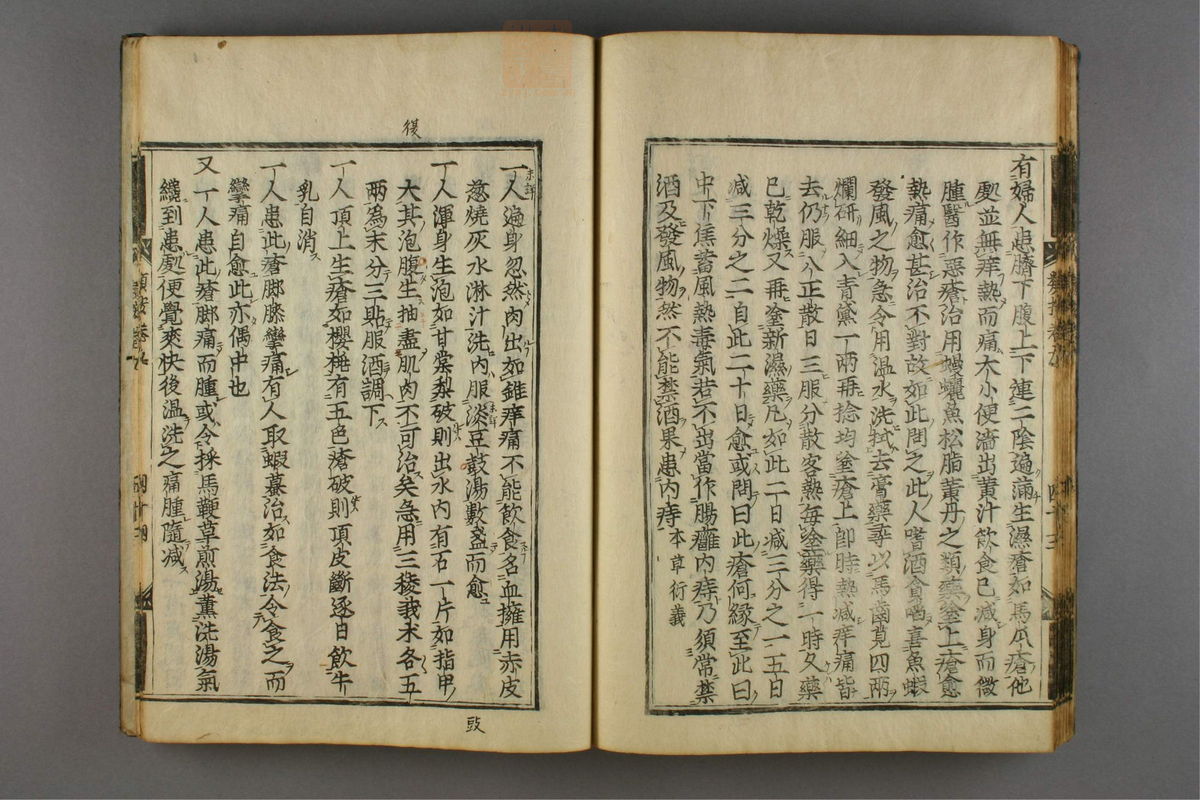 有婦人患臍下腹上下連二陰遍滿生濕瘡如馬瓜瘡他
處並無痒熱而痛大小便澁出黄汁飲食已减身而微
腫醫作惡瘡治用鰻鱺魚松脂黄丹之類藥塗上瘡愈
熱痛愈甚治不對故如此問之此人嗜酒貪啗喜魚蝦
發風之物急令用温水洗拭去膏藥尋以馬齒莧四兩
爛研細入青黛一兩再捻均塗瘡上即時熱减痒痛皆
去仍服八正散日三服分散客熱每塗藥得一時久藥
已乾燥又再塗新濕藥凡如此二日减三分之一五日
减三分之二自此二十日愈或問曰此瘡何縁至此曰
中下焦蓄風熱毒氣若不出當作腸癰内痔乃須常禁
酒及發風物然不能禁酒果患内痔 本草衍義
一人遍身忽然肉出如錐痒痛不能飲食名血擁用赤皮
葱燒灰水淋汁洗内服淡豆鼓湯數盞而愈
一人渾身生泡如甘棠梨破則出水内有石一片如指甲
大其泡腹生抽盡肌肉不可治矣急用三稜莪朮各五
兩為末分三貼服酒調下
一人頂上生瘡如櫻桃有五色瘡破則頂皮斷逐日飲牛
乳自消
一人患此瘡脚膝攣痛有人取蝦蟇治如食法令食之而
攣痛自愈此亦偶中也
又一人患此瘡脚痛而腫或令採馬鞭草煎湯薫洗湯氣
纔到患處便覺爽快後温洗之痛腫隨减
復
豉